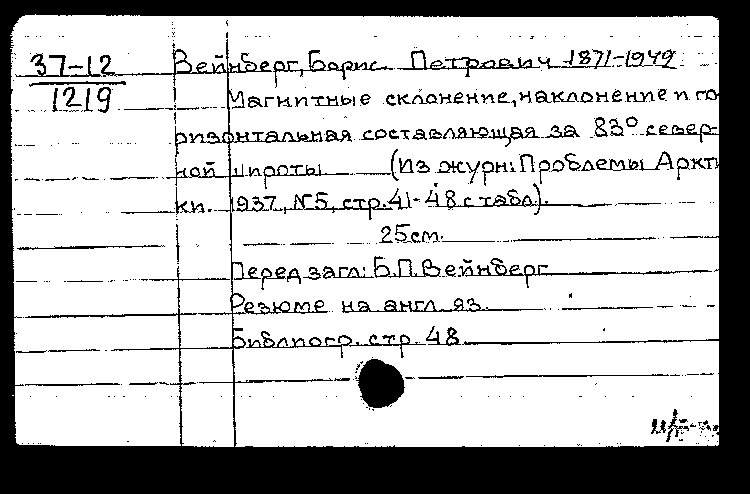 37-12
1219
Вейнберг, Борис Петрович 1871-1949
Магнитные склонение, наклонение и го
ризонтальная составляющая за 83° север-
ной широты (Из журн: Проблемы Аркти
ки. 1937, N5, стр. 41-48 с табл).
25см.
Перед загл: Б.П. Вейнберг
Резюме на англ яз.
Библиогр. стр. 48